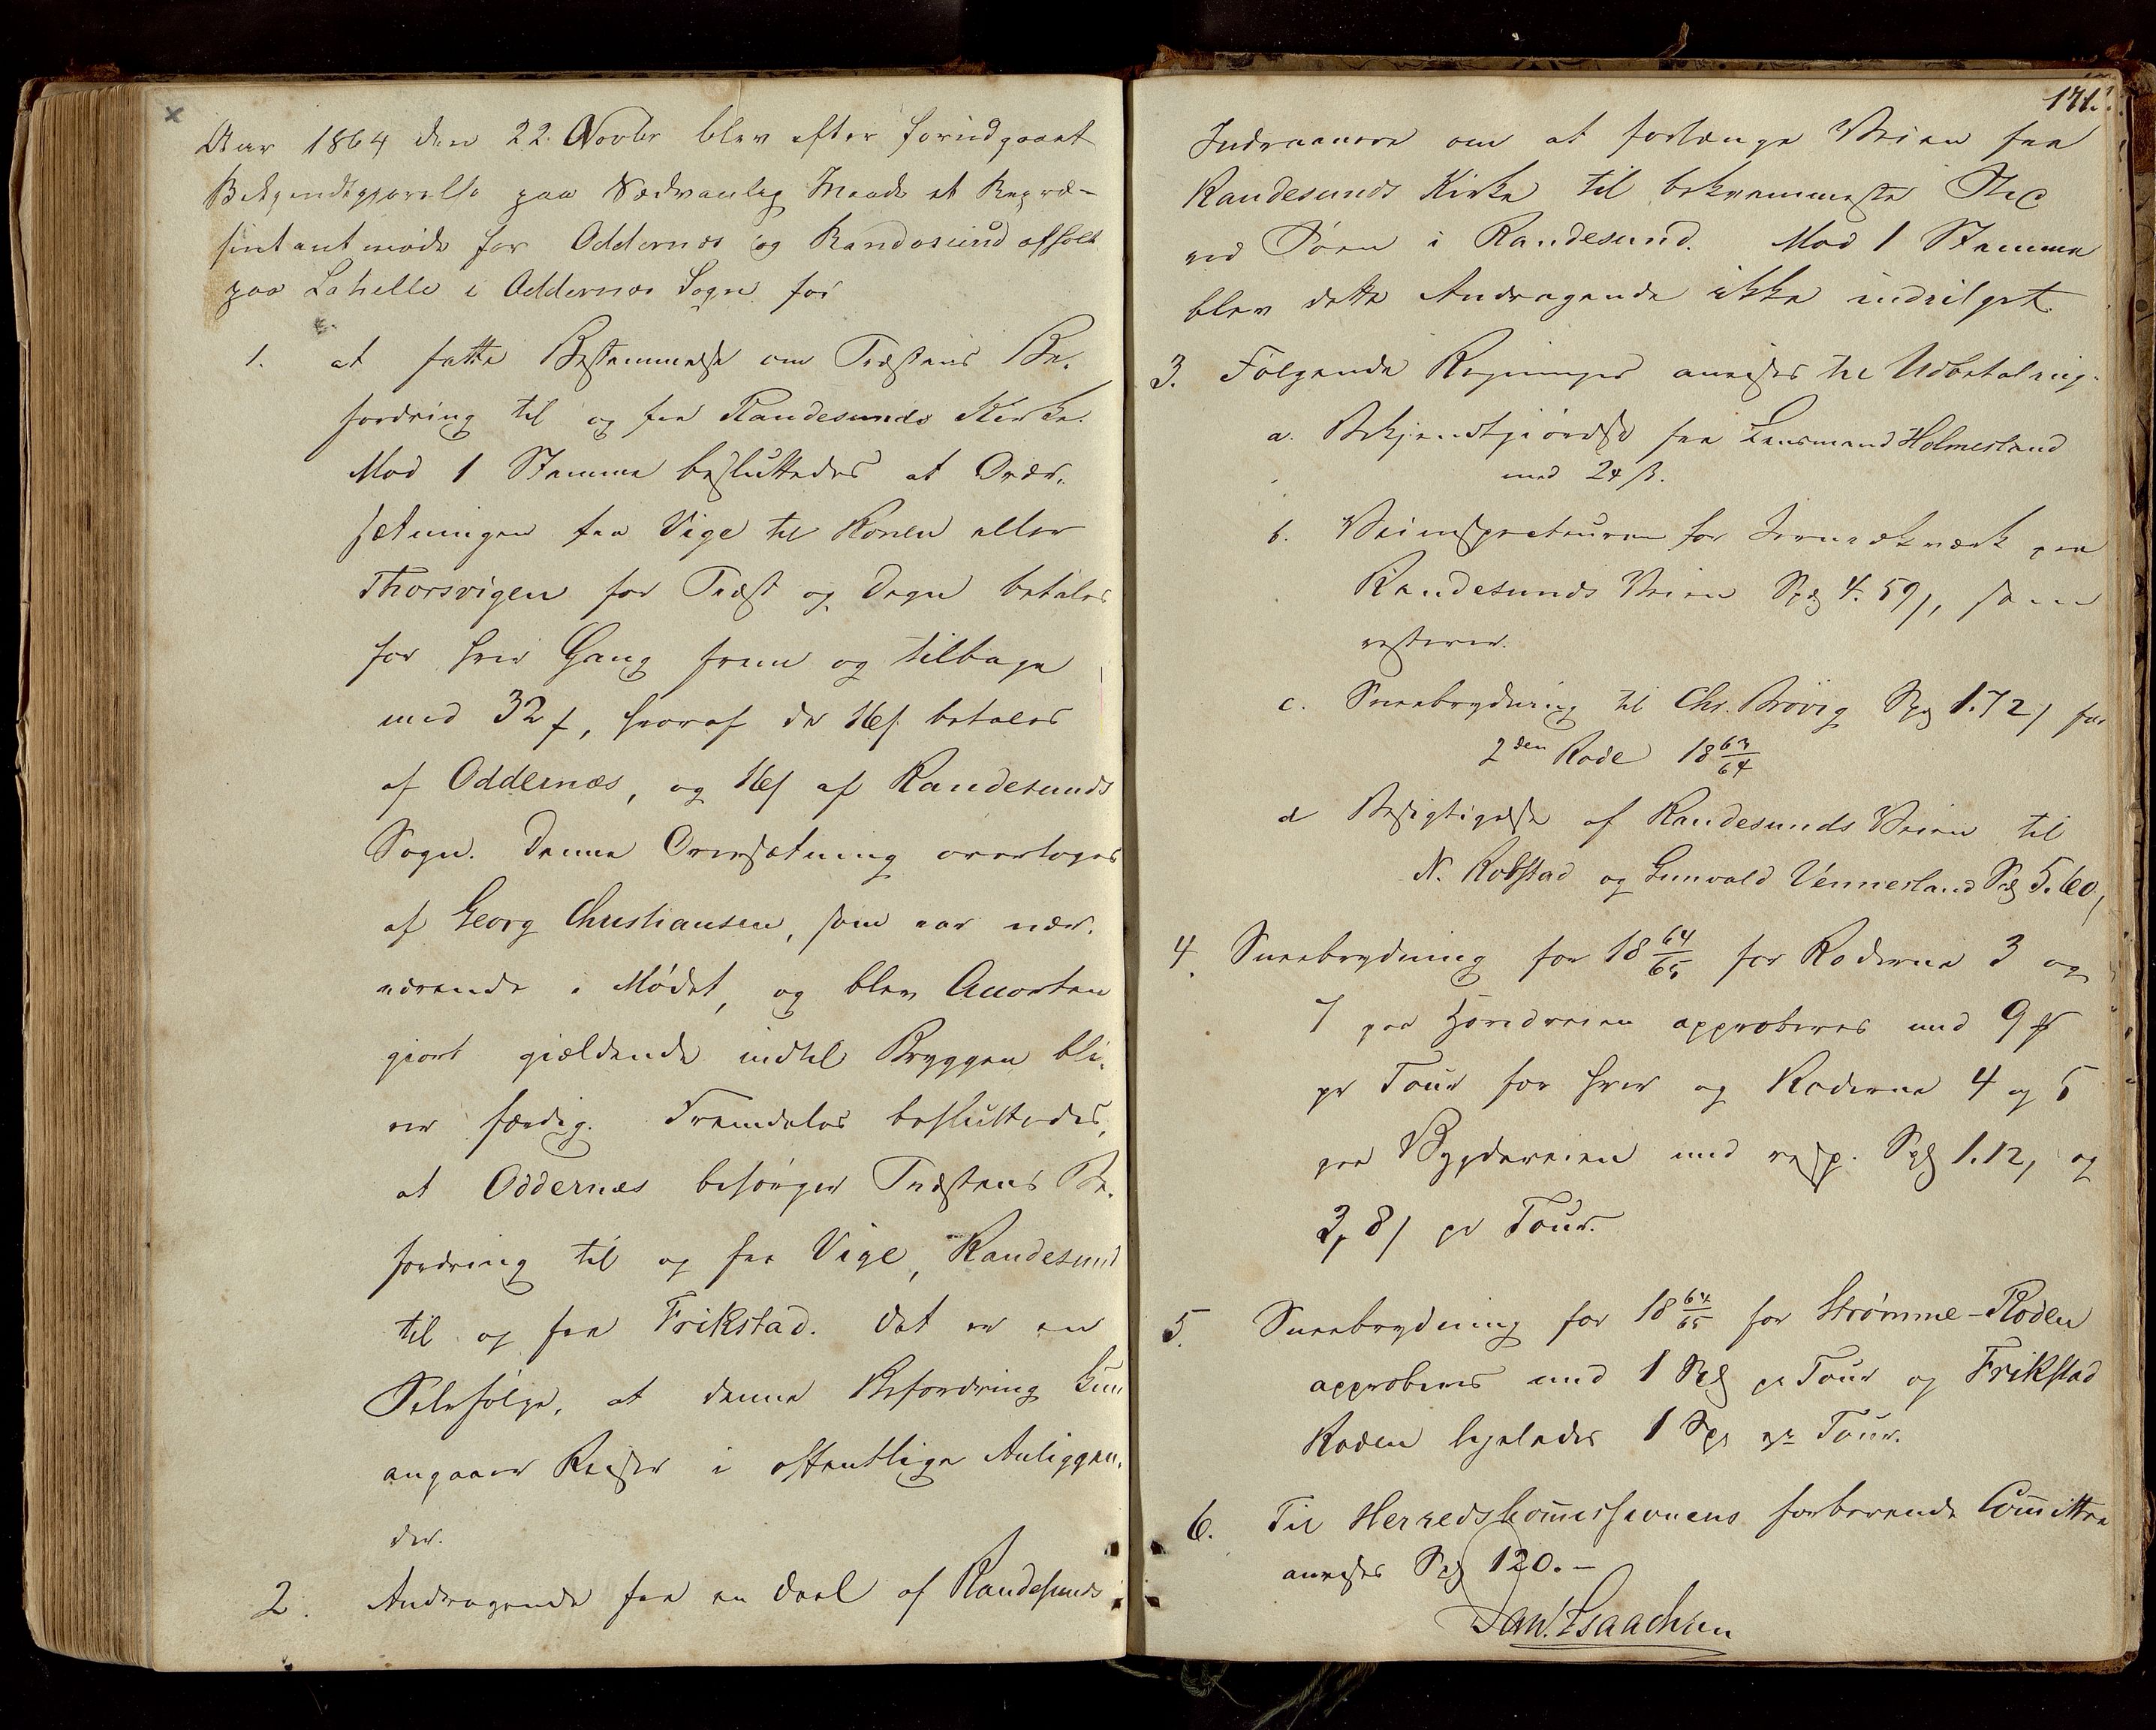 Aar 1864 den 22. Novbr blev efter forudgaaet
Bekjendtgjørelse paa sædvanlig Maade et Repræ-
sentantmøde for Oddernes og Randøsund afholdt
paa Lahelle i Oddernes Sogn for
1. at fatte Bestemmelse om Præstens Be-
fordring til og fra Randesunds Kirke.
Mod 1 Stemme besluttedes at Over-
sætningen fra Vige til Konen eller
Thorsvigen for Præst og Degn betales
for hver Gang frem og tilbage
med 32 ß, hvoraf de 16 ß betales
af Oddernæs, og 16 ß af Randesunds
Sogn. Denne Oversætning overtoges
af Georg Christiansen, som var nær-
værende i Mødet, og blev Accorten
gjort gjældende indtil Bryggen bli-
ver færdig. Fremdeles besluttedes,
at Oddernæs besørger Præstens Be-
fordring til og fra Vige, Randesund
til og fra Frikstad. Det er en
Selvfølge, at denne Befordring kun
angaaer Reiser i offentlige Anliggen-
der.
2. Andragende fra en Deel af Randesunds
171.
Indvaanere om at forlænge Veien fra
Randesunds Kirke til bekvemmeste Sted
ved Søen i Randesund. Mod 1 Stemme
blev dette Andragende ikke indvilget.
3. Følgende Regninger anvises til Udbetaling.
a. Bekjendtgjørelse fra Lensmand Holmesland
med 24 ß.
b. Veiinspecteuren for paa
Randesunds Veien Spd 4. 59 ß, som
resterer.
c. Sneebrydning til Chr. Brøvig Spd 1. 72 ß for
2den Rode 18 63/64
d Besigtigelse af Randesunds Veien til
N. Robstad og Gunvald Vennesland Spd 5. 60,
4. Sneebrydning for 18 64/65 for Roderne 3 og
7 paa Hovedveien approberes med 9 ß
pr Tour for hver og Roderne 4 og 5
paa Bygdeveien med resp. Spd 1. 12, og
3, 8 ß pr Tour.
5. Sneebrydning for 18 64/65 for Strømme-Roden
approberes med 1 Spd pr Tour og Frikstad
Roden ligeledes 1 Spd pr Tour.
6. Til Herredskommissionens forberende Committee
anvises Spd 120. –
Dan. Isaachsen